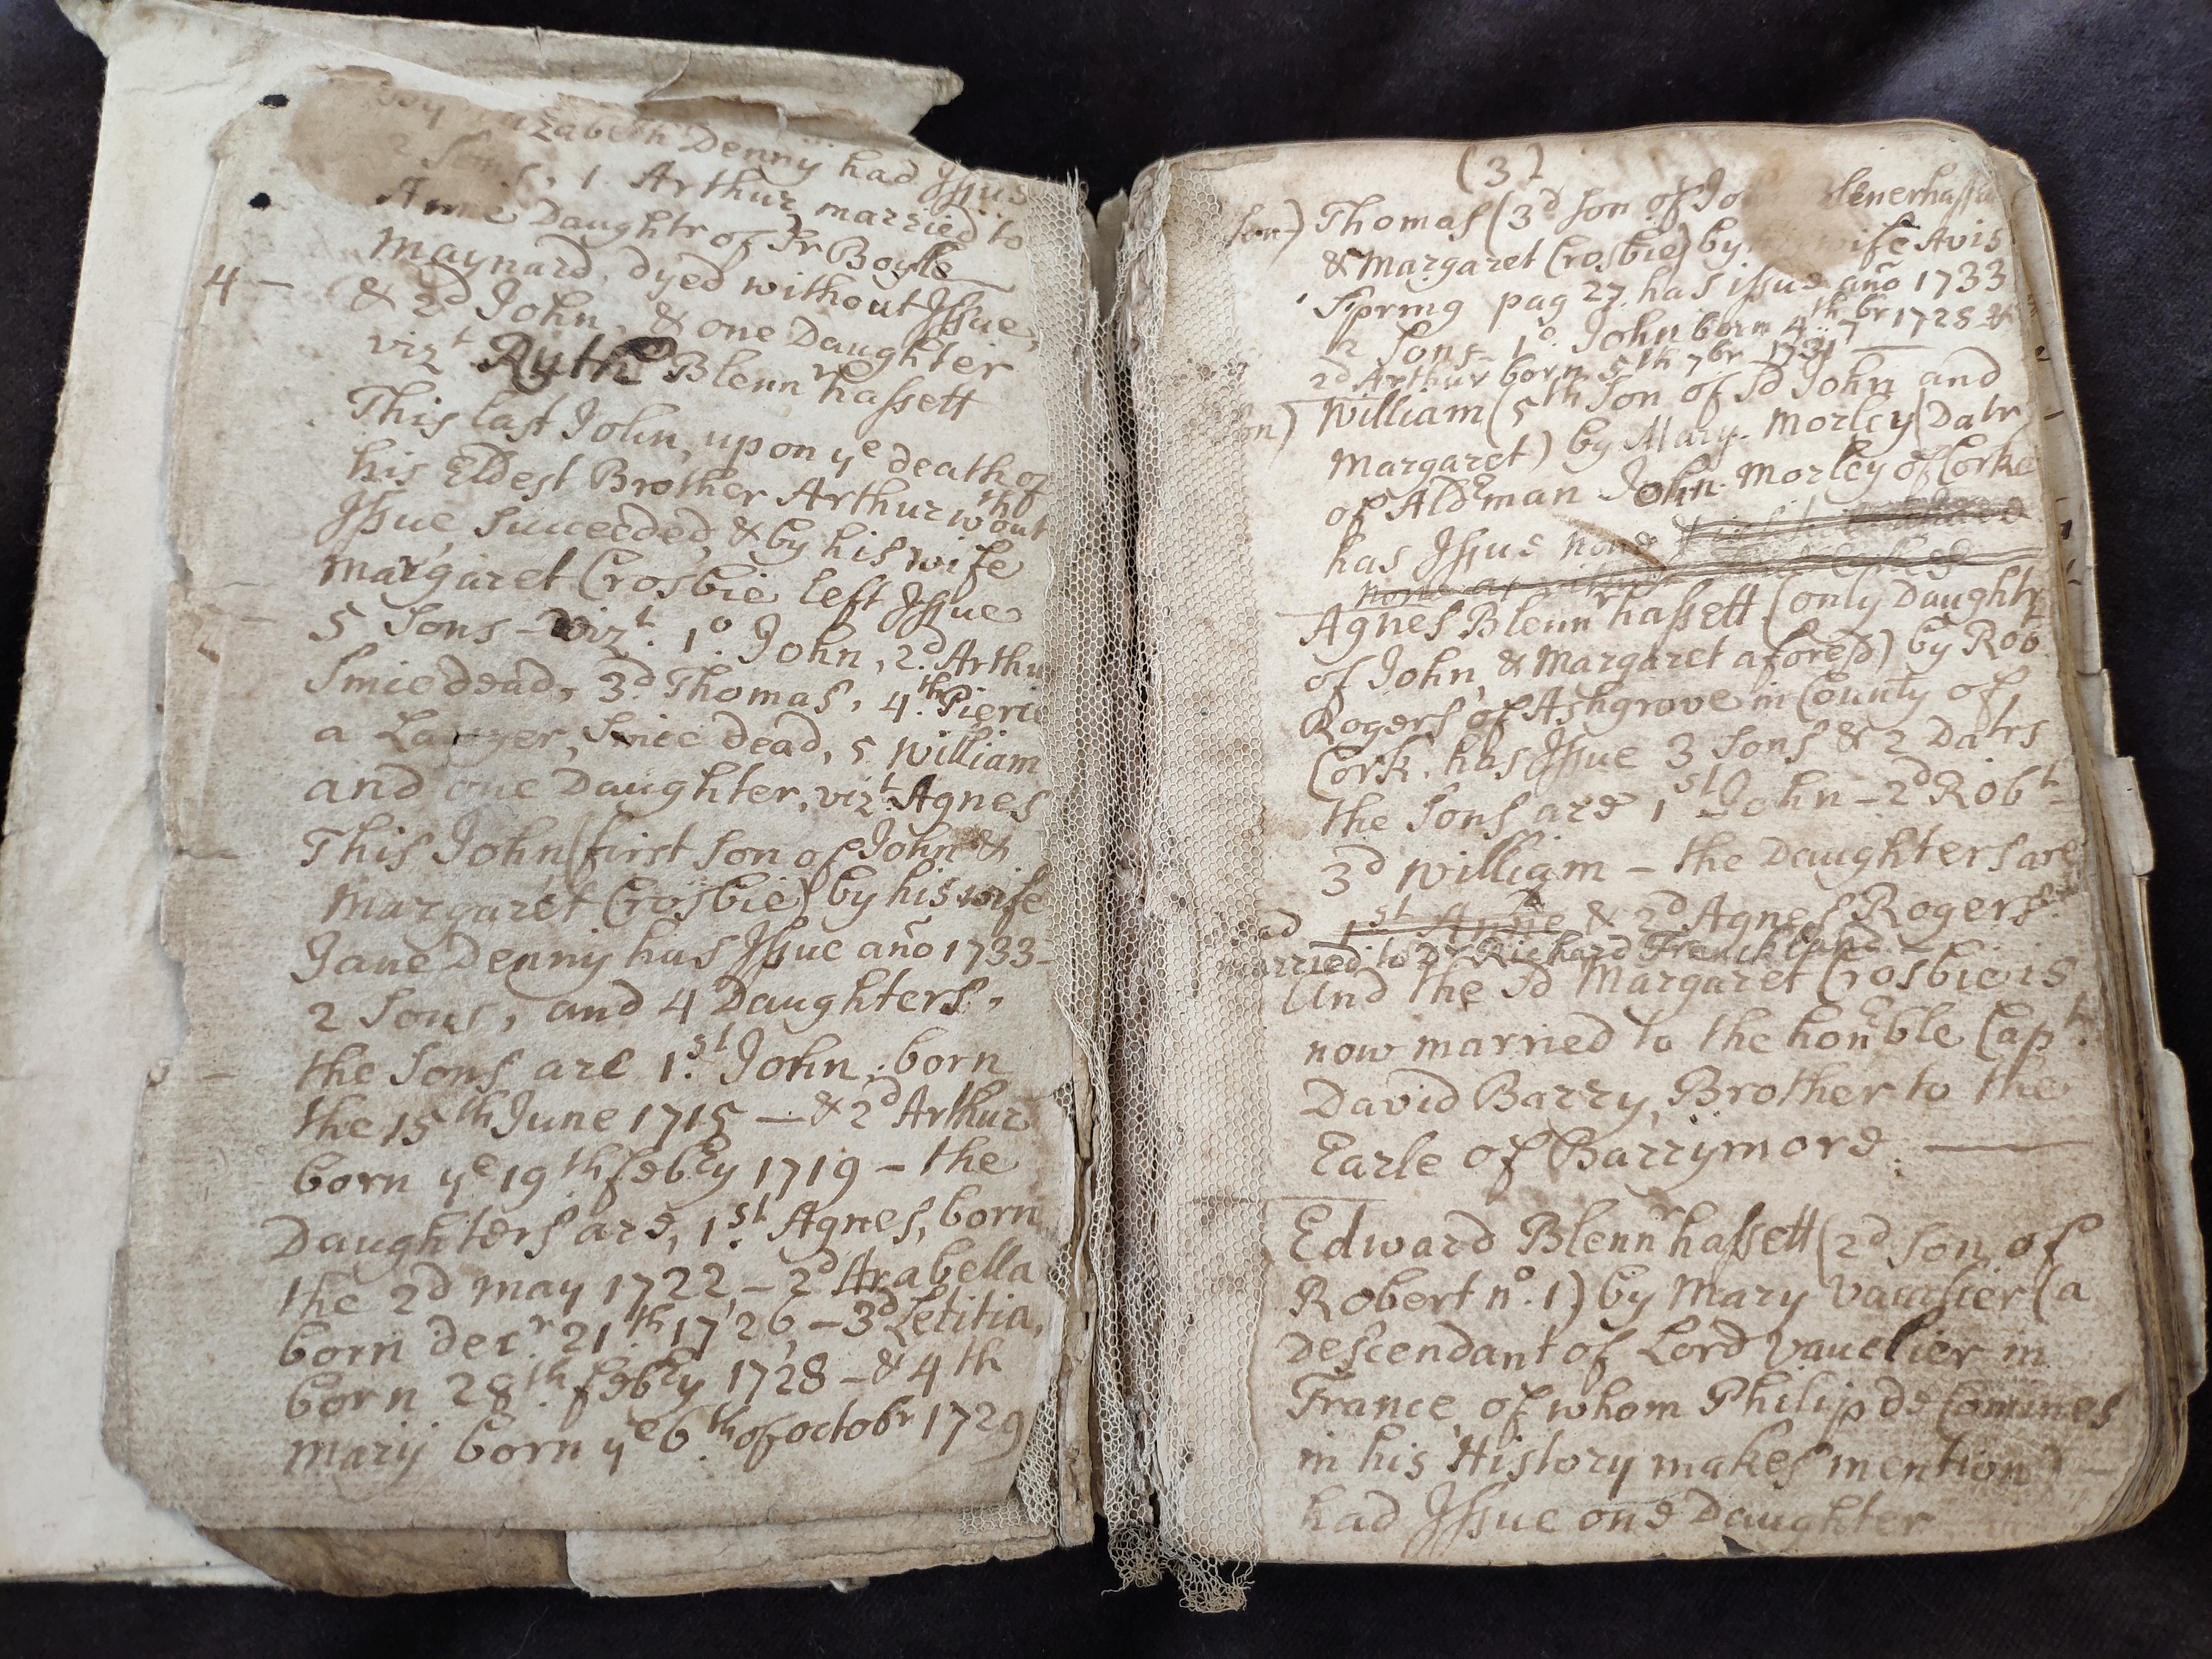 Elizabeth Denny had Issue
2 Sons, 1. Arthur married to
Anne Daughtr of Sr Boyle
Maynard, dyed without Issue,
4 — & 2d John, & one Daughter
vizt Ruth Blennrhassett
This last John, upon ye death of
his Eldest Brother Arthur wthout
Issue, Succeeded, & by his wife
Margaret Crosbie left Issue
5 Sons - vizt. 1o. John, 2d. Arthu
Since dead, 3d Thomas, 4th. Pierce
a Lawyer, Since dead, 5 William
and one Daughter, vizt. Agnes
This John (first son of John &
Margaret Crosbie) by his wife
Jane Denny has Issue año 1733 -
2 Sons, and 4 Daughters,
the Sons are 1st. John, born
the 15th June 1715 — & 2d Arthur
born ye 19th febry 1719 - the
Daughters are, 1st. Agnes, born
the 2d may 1722, - 2d Arabella
born decr. 21th 1726, - 3d Letitia,
born 28th. febry 1728 - & 4th
Mary born ye 6th of octobr 1729
(3)
son) Thomas (3d son of Jo lenerhassett
& Margaret Crosbie) by wife Avis
Spring pag 27. has issue año 1733
2 Sons - 1o. John born 4th 7br 1728 &
2d Arthur born 5th 7br 1731 —
on) William (5th Son of Sd John and
Margaret) by Mary Morley (Datr
of Aldrman John Morley of Corke
has Issue none
none
Agnes Blennrhassett (only Daughtr
of John & Margaret aforesd) by Rob
Rogers of Ashgrove in County of
Cork, has Issue 3 Sons & 2 Datrs
the Sons are 1st John - 2d Robt -
3d William - the Daughters are
ad 1st Anne & 2d Agnes Rogers.
married to Dr Richard Franckland
And the Sd Margaret Crosbie is
now married to the honrble Capt.
David Barry, Brother to the
Earle of Barrymore. —
Edward Blennrhassett (2d son of
Robert no. 1) by Mary Vauclier (a
descendant of Lord Vauclier in
France, of whom Philip de Comines
in his History makes mention) -
had Issue one Daughter